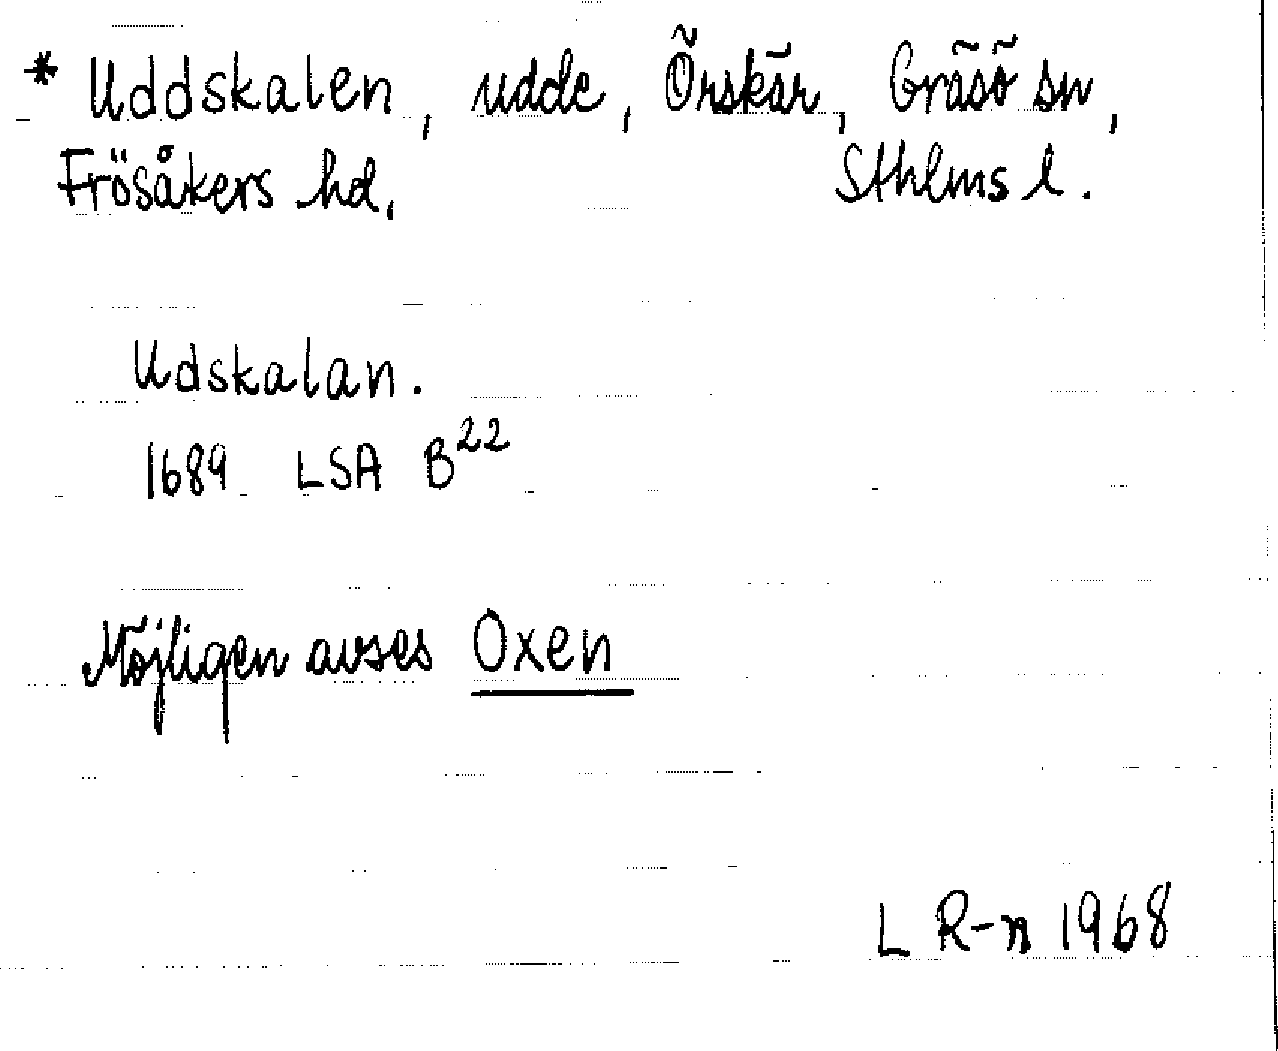 * Uddskalen, udde, Örskär, Gräsö sn,
Frösåkers hd, Sthlms l.
Udskalan.
1689 LSA B²²
Möjligen avses Oxen
L R-n 1968